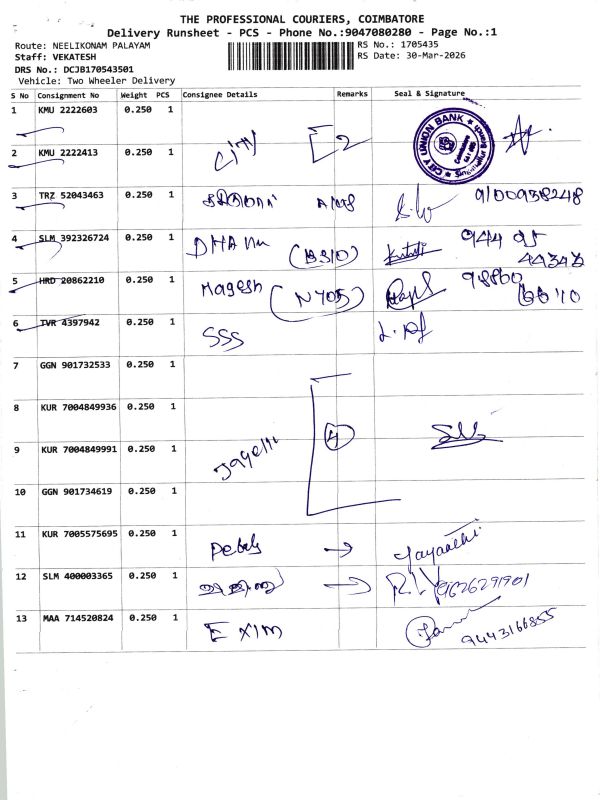 THE PROFESSIONAL COURIERS, COIMBATORE
Delivery Runsheet - PCS - Phone No.:9047080280 - Page No.:1
Route: NEELIKONAM PALAYAM
RS No.: 1705435
Staff: VEKATESH
RS Date: 30-Mar-2026
DRS No.: DCJB170543501
Vehicle: Two Wheeler Delivery
S No Consignment No Weight PCS Consignee Details Remarks Seal & Signature
1 KMU 2222603 0.250 1
CITY UNION BANK
Coimbatore
2 KMU 2222413 0.250 1 City 2
3 TRZ 52043463 0.250 1 9100938248
4 SLM 392326724 0.250 1 DHANU (B310) 944 95
44343
5 HRD 20862210 0.250 1 Magesh (N705) 98860
66710
6 TVR 4397942 0.250 1 SSS
7 GGN 901732533 0.250 1
8 KUR 7004849936 0.250 1 4
9 KUR 7004849991 0.250 1
10 GGN 901734619 0.250 1
11 KUR 7005575695 0.250 1 →
12 SLM 400003365 0.250 1 → 9626291901
13 MAA 714520824 0.250 1 EXIM 9443166855